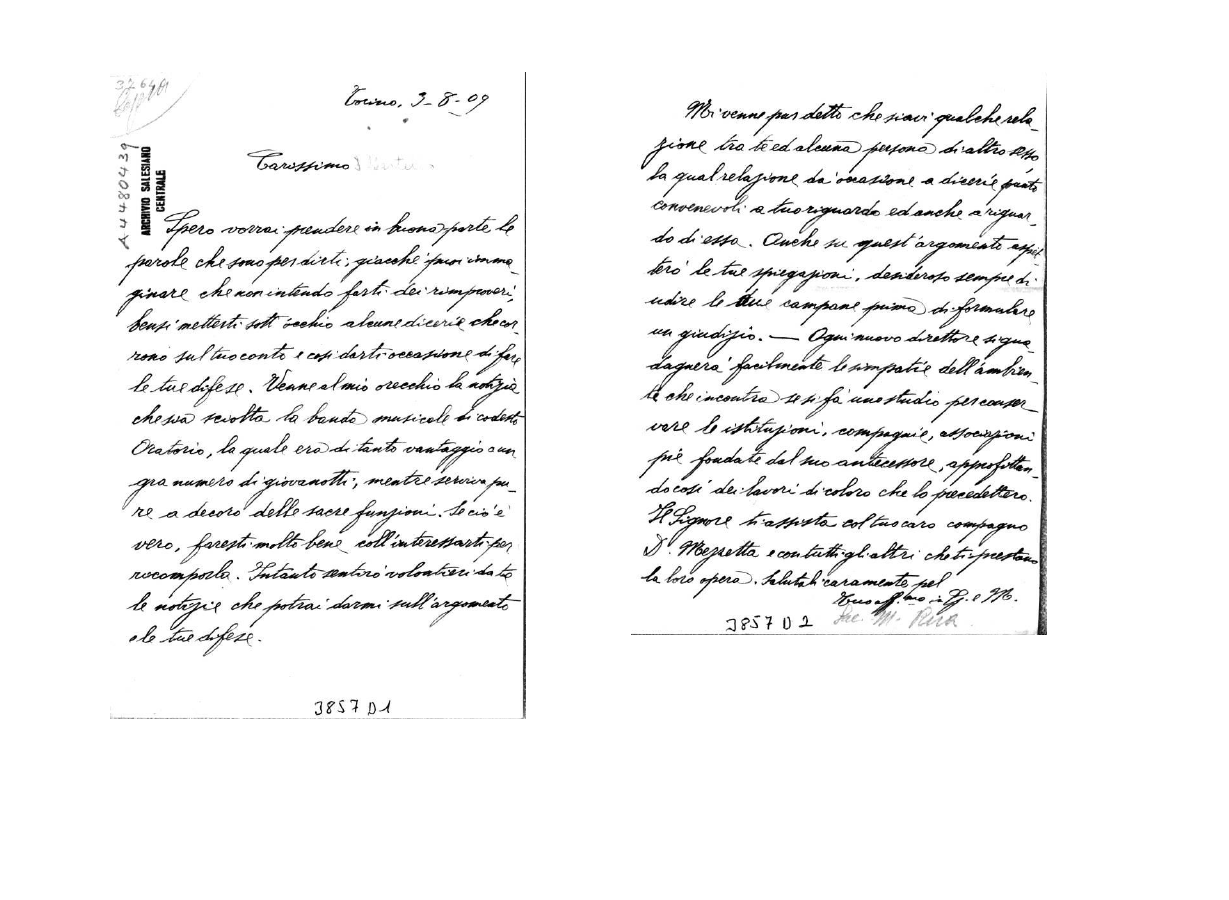 37640
Torino, 3-8-09
Carissimo D
A4480439
ARCHIVIO SALESIANO
CENTRALE
Spero vorrai prendere in buona parte le
parole che sono per dirti; giacchè puoi imma-
ginare che non intendo farti dei rimproveri,
bensì metterti sott'occhio alcune dicerie che cor-
rono sul tuo conto e così darti occasione di fare
le tue difese. Venne al mio orecchio la notizia
che sia sciolta la banda musicale di codesto
Oratorio, la quale era di tanto vantaggio a un
gra numero di giovanotti, mentre serviva pu-
re a decoro delle sacre funzioni. Se ciò è
vero, faresti molto bene coll'interessarti per
ricomporla. Intanto sentirò volontieri da te
le notizie che potrai darmi sull'argomento
e le tue difese.
3857 D1
Mi venne pur detto che siavi qualche rela-
zione tra te ed alcuna persona di altro sesso
la qual relazione da occasione a dicerie punto
convenevoli a tuo riguardo ed anche a riguar-
do di essa. Anche su quest'argomento aspet-
terò le tue spiegazioni, desideroso sempre di
udire le due campane prima di formulare
un giudizio. — Ogni nuovo direttore si gua-
dagnerà facilmente le simpatie dell'ambien-
te che incontra se si fà uno studio per conser-
vare le istituzioni, compagnie, associazioni
pie fondate dal suo antecessore, approfittan-
do così dei lavori di coloro che lo precedettero.
Il Signore ti assista col tuo caro compagno
D. Mezzetta e con tutti gli altri che ti prestano
la loro opera. Salutali caramente pel
Tuo aff.mo in G. e M.
Sac. M. Rua
3857 D2